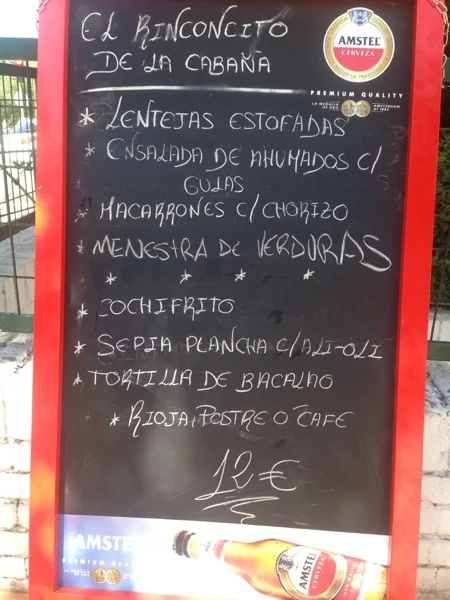 EL RINCONCITO
DE LA CABAÑA
AMSTEL
CERVEZA
PREMIUM QUALITY
LA MEDALLA DE ORO
AMSTERDAM
* LENTEJAS ESTOFADAS
* ENSALADA DE AHUMADOS C/
GULAS
* MACARRONES C/CHORIZO
* MENESTRA DE VERDURAS
* * * *
* COCHIFRITO
* SEPIA PLANCHA C/ALI-OLI
* TORTILLA DE BACALAO
* RIOJA, POSTRE O CAFE
12 €
AMSTE
PREMIUM QUA
AMSTEL
CERVEZA